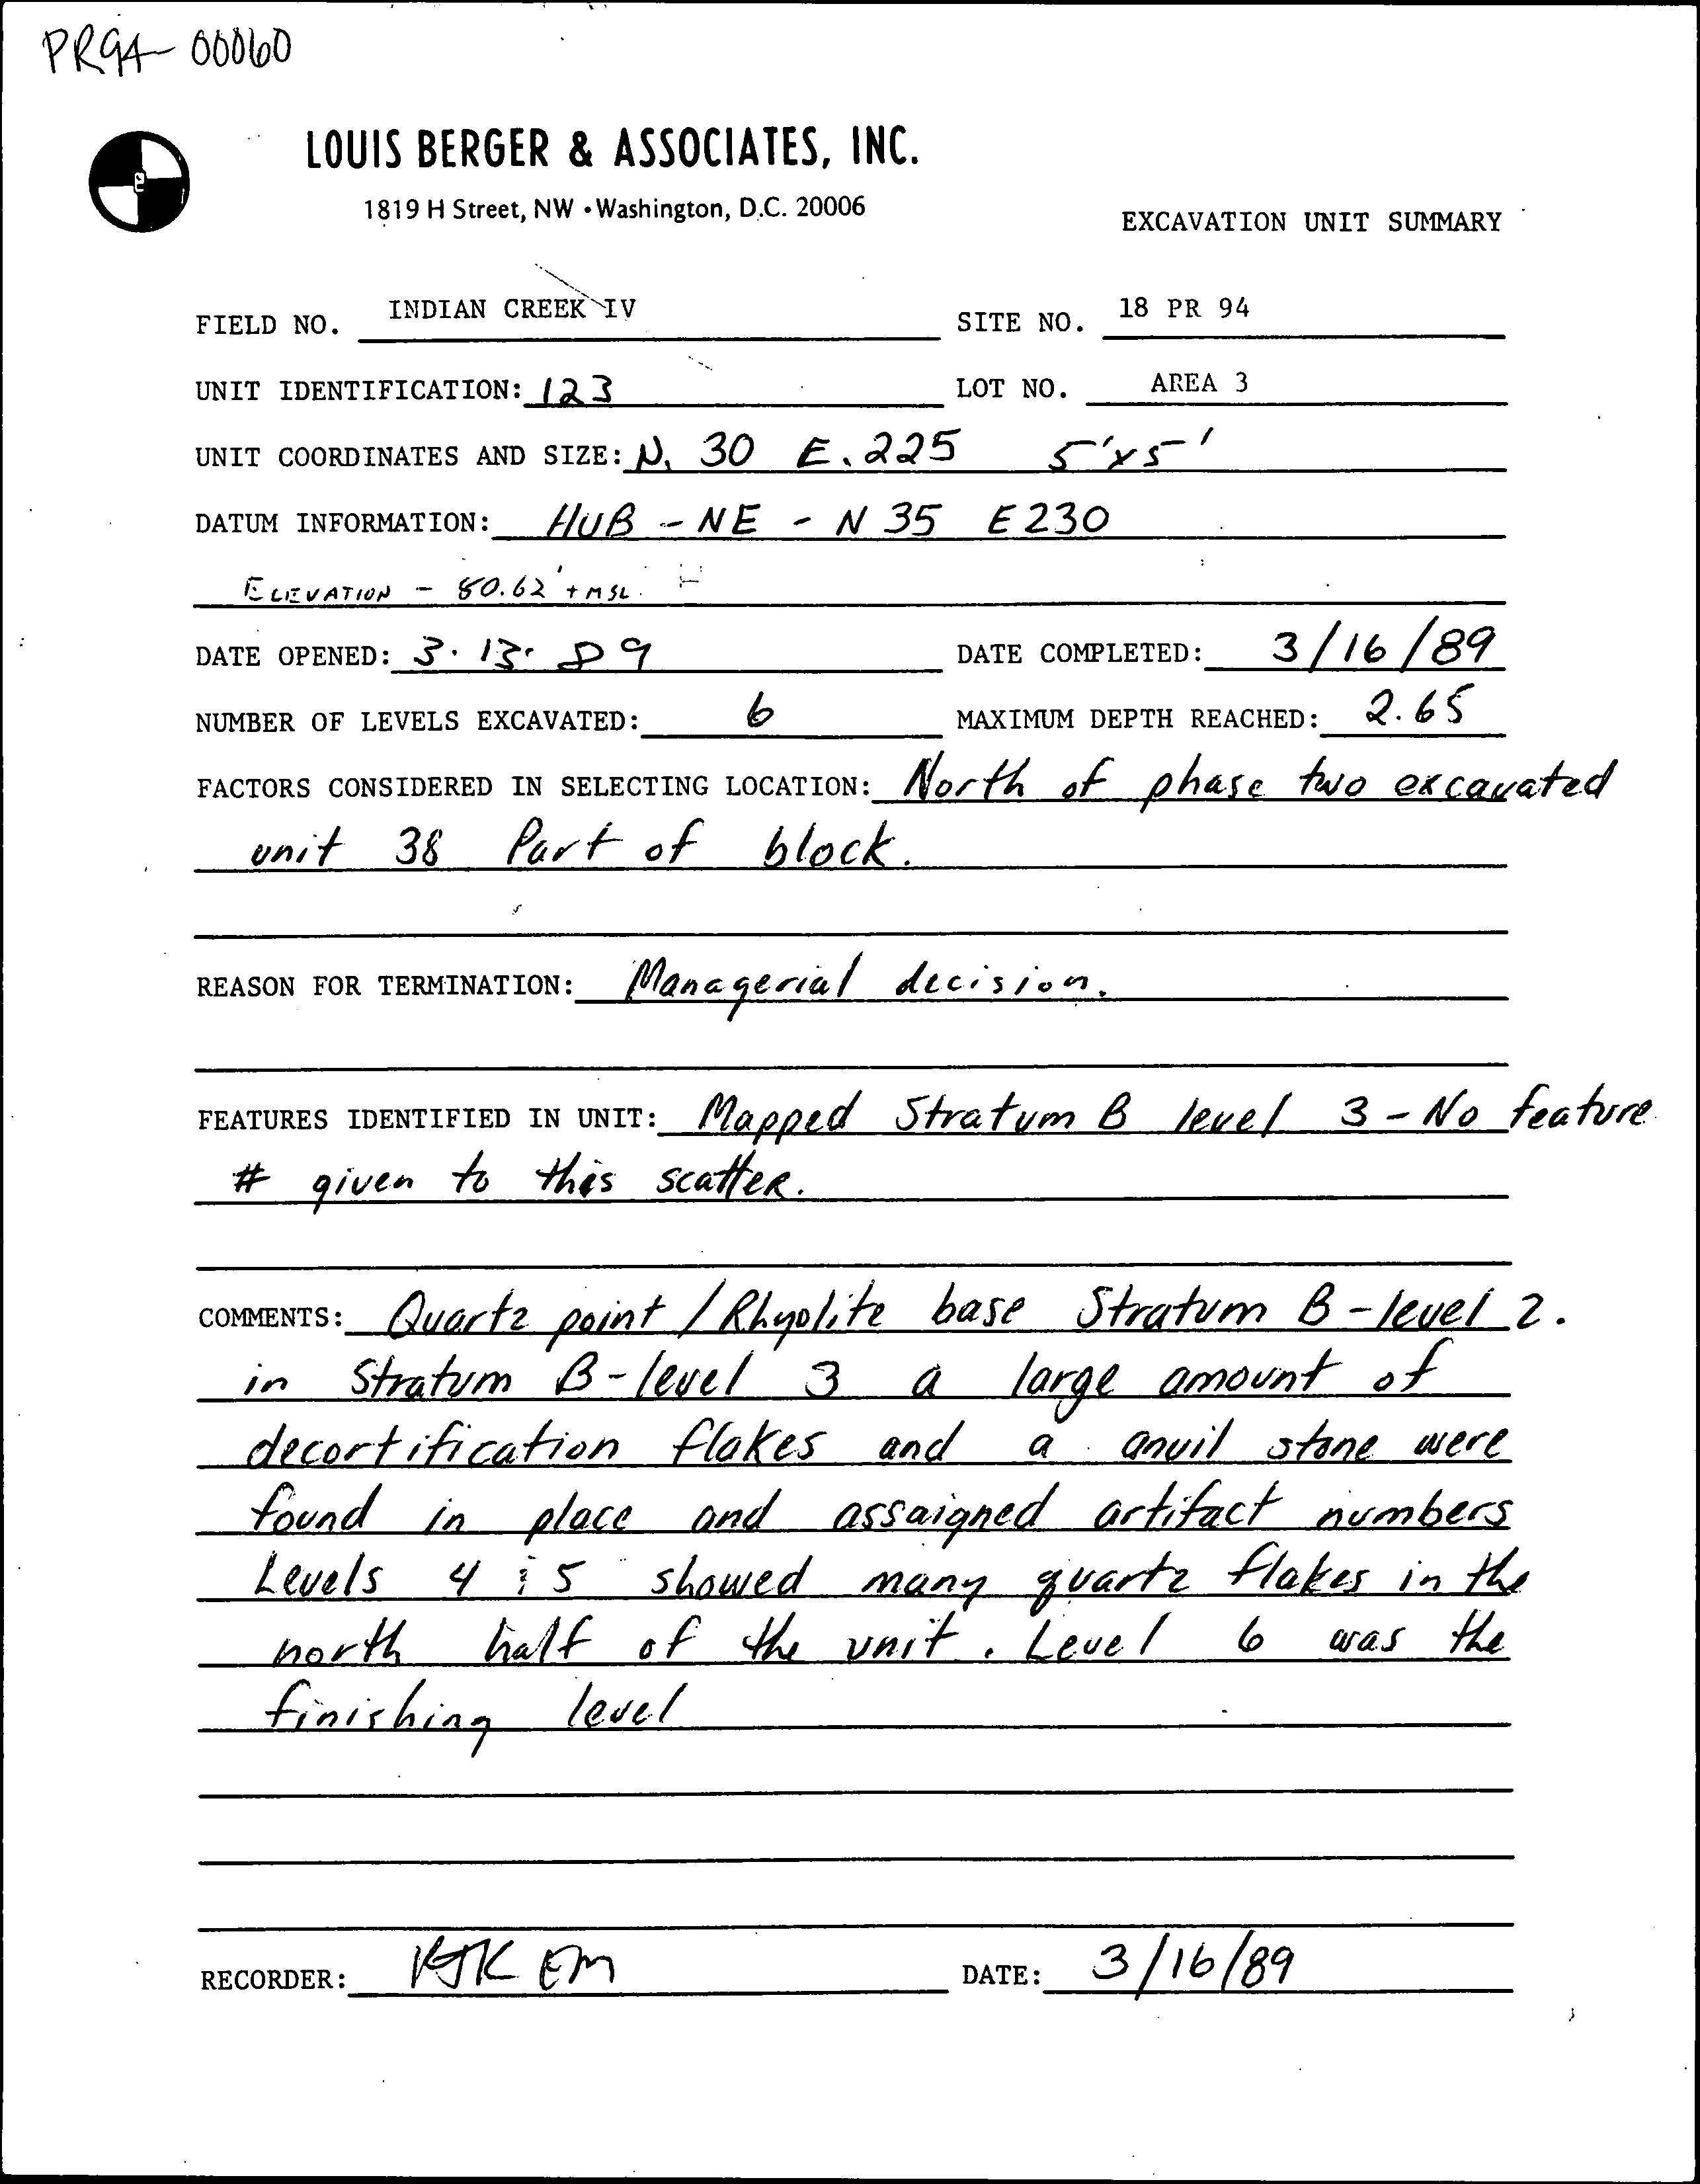 PR94-00060
LOUIS BERGER & ASSOCIATES, INC.
1819 H Street, NW • Washington, D.C. 20006
EXCAVATION UNIT SUMMARY
FIELD NO. INDIAN CREEK IV SITE NO. 18 PR 94
UNIT IDENTIFICATION: 123 LOT NO. AREA 3
UNIT COORDINATES AND SIZE: N. 30 E. 225 5'x5'
DATUM INFORMATION: HUB - NE - N 35 E 230
ELEVATION - 80.62' + MSL.
DATE OPENED: 3. 13. 89 DATE COMPLETED: 3/16/89
NUMBER OF LEVELS EXCAVATED: 6 MAXIMUM DEPTH REACHED: 2.65
FACTORS CONSIDERED IN SELECTING LOCATION: North of phase two excavated
unit 38 Part of block.
REASON FOR TERMINATION: Managerial decision.
FEATURES IDENTIFIED IN UNIT: Mapped Stratum B level 3 - No feature
# given to this scatter.
COMMENTS: Quartz point / Rhyolite base Stratum B - level 2.
in Stratum B - level 3 a large amount of
decortification flakes and a anvil stone were
found in place and assaigned artifact numbers
Levels 4 & 5 showed many quartz flakes in the
north half of the unit. Level 6 was the
finishing level
RECORDER: KJK EM DATE: 3/16/89